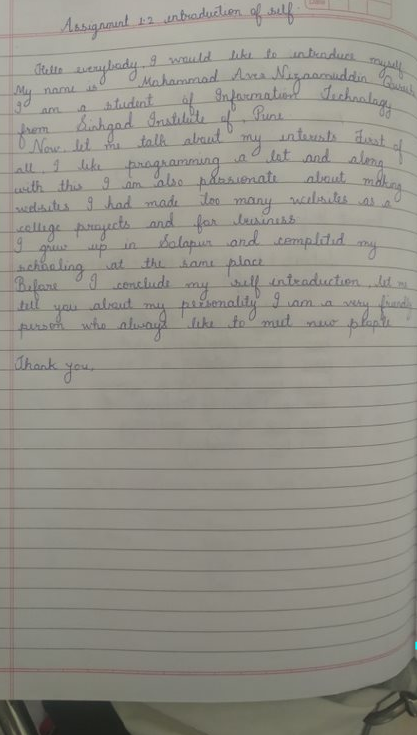 Assignment 1.2 introduction of self
Date
Hello everybody, I would like to introduce myself
My name is Mohammad Nizaamuddin
I am a student of Information Technology
from Sinhgad Institute of, Pune
Now, let me talk about my interests First of
all, I like programming a lot and along
with this I am also passionate about making
websites I had made too many websites as a
college projects and for business
I grew up in Solapur and completed my
schooling at the same place
Before I conclude my self introduction, let me
tell you about my personality I am a very friendly
person who always like to meet new people
Thank you,